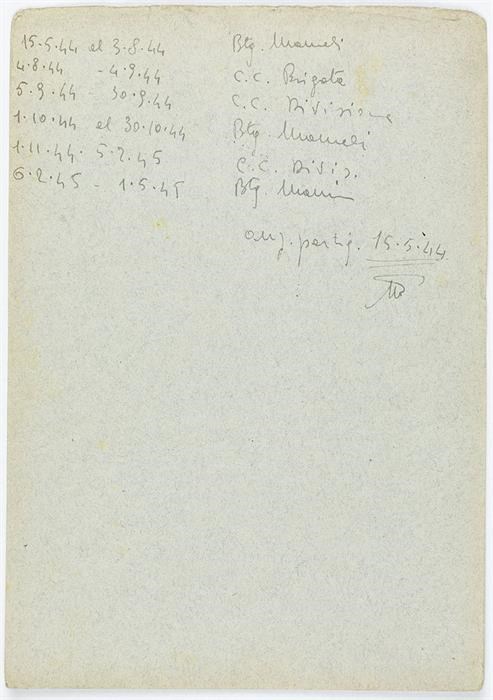 15.5.44 al 3.8.44 Btg. Mameli
4.8.44 - 4.9.44 C.C. Brigata
5.9.44 - 30.9.44 C.C. Divisione
1.10.44 al 30.10.44 Btg. Mameli
1.11.44. 5.2.45 C.C. Divis.
6.2.45 - 1.5.45 Btg. Manin
anz. partig. 15.5.44